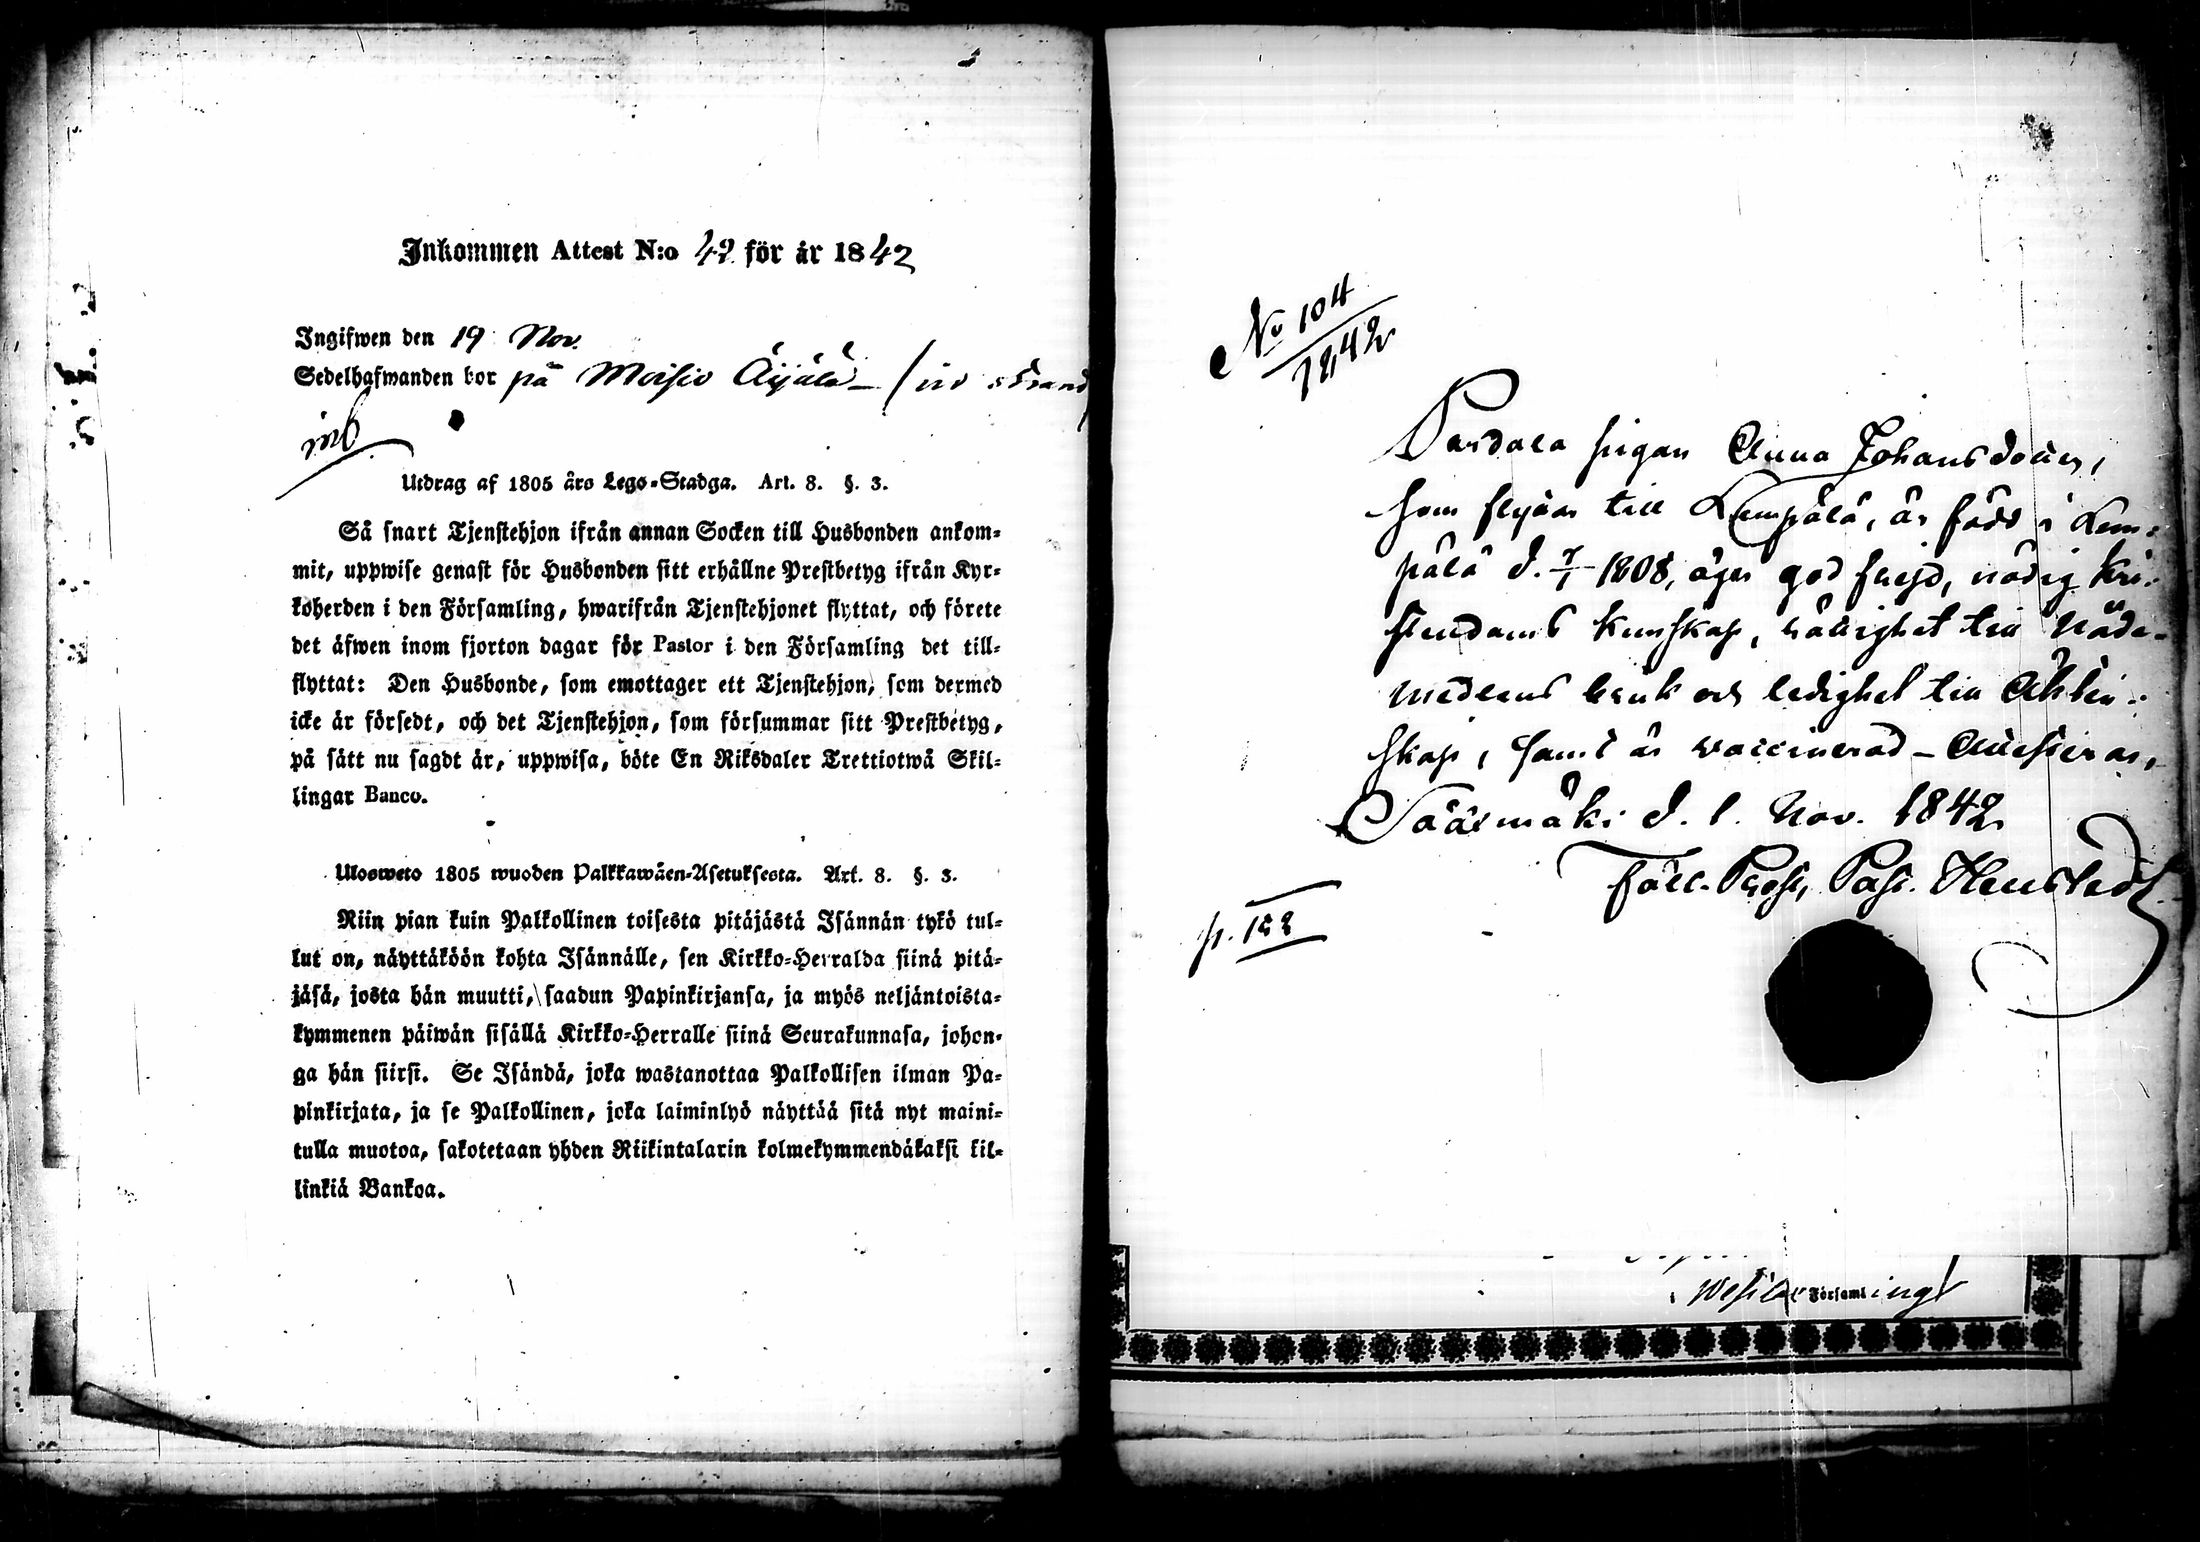 Inkommen Attest N:o 42 för år 1842
Ingifwen den 19 Nov.
Sedelhafwanden bor på Moisio Äijälä
inb
Utdrag af 1805 års Lego-Stadga. Art. 8. §. 3.
Så snart Tjenstehjon ifrån annan Socken till Husbonden ankom-
mit, uppwise genast för Husbonden sitt erhållne Prestbetyg ifrån Kyr-
koherden i den Församling, hwarifrån Tjenstehjonet flyttat, och förete
det äfwen inom fjorton dagar för Pastor i den Församling det till-
flyttat: Den Husbonde, som emottager ett Tjenstehjon, som dermed
icke är försedt, och det Tjenstehjon, som försummar sitt Prestbetyg,
på sätt nu sagdt är, uppwisa, böte En Riksdaler Trettiotwå Skil-
lingar Banco.
Ulosweto 1805 wuoden Palkkawäen-Asetuksesta. Art. 8. §. 3.
Niin pian kuin Palkollinen toisesta pitäjästä Isännän tykö tul-
lut on, näyttäköön kohta Isännälle, sen Kirkko-Herralda siinä pitä-
jäsä, josta hän muutti, saadun Papinkirjansa, ja myös neljäntoista-
kymmenen päiwän sisällä Kirkko-Herralle siinä Seurakunnasa, johon-
ga hän siirsi. Se Isändä, joka wastanottaa Palkollisen ilman Pa-
pinkirjata, ja se Palkollinen, joka laiminlyö näyttää sitä nyt maini-
tulla muotoa, sakotetaan yhden Riikintalarin kolmekymmendäkaksi kil-
linkiä Bankoa.
No 104
1842
Pardala pigan Anna Johansdotter,
som flyttar till Lempälä, är född i Lem-
pälä d. 7/1 1808, äger god frejd, nödig kri-
stendoms kunskap, rättighet till Nåde-
medlens bruk och ledighet till Äkten-
skap, samt är vaccinerad - Attesteras,
Sääsmäki d. 1. Nov. 1842
p. 122
Församling